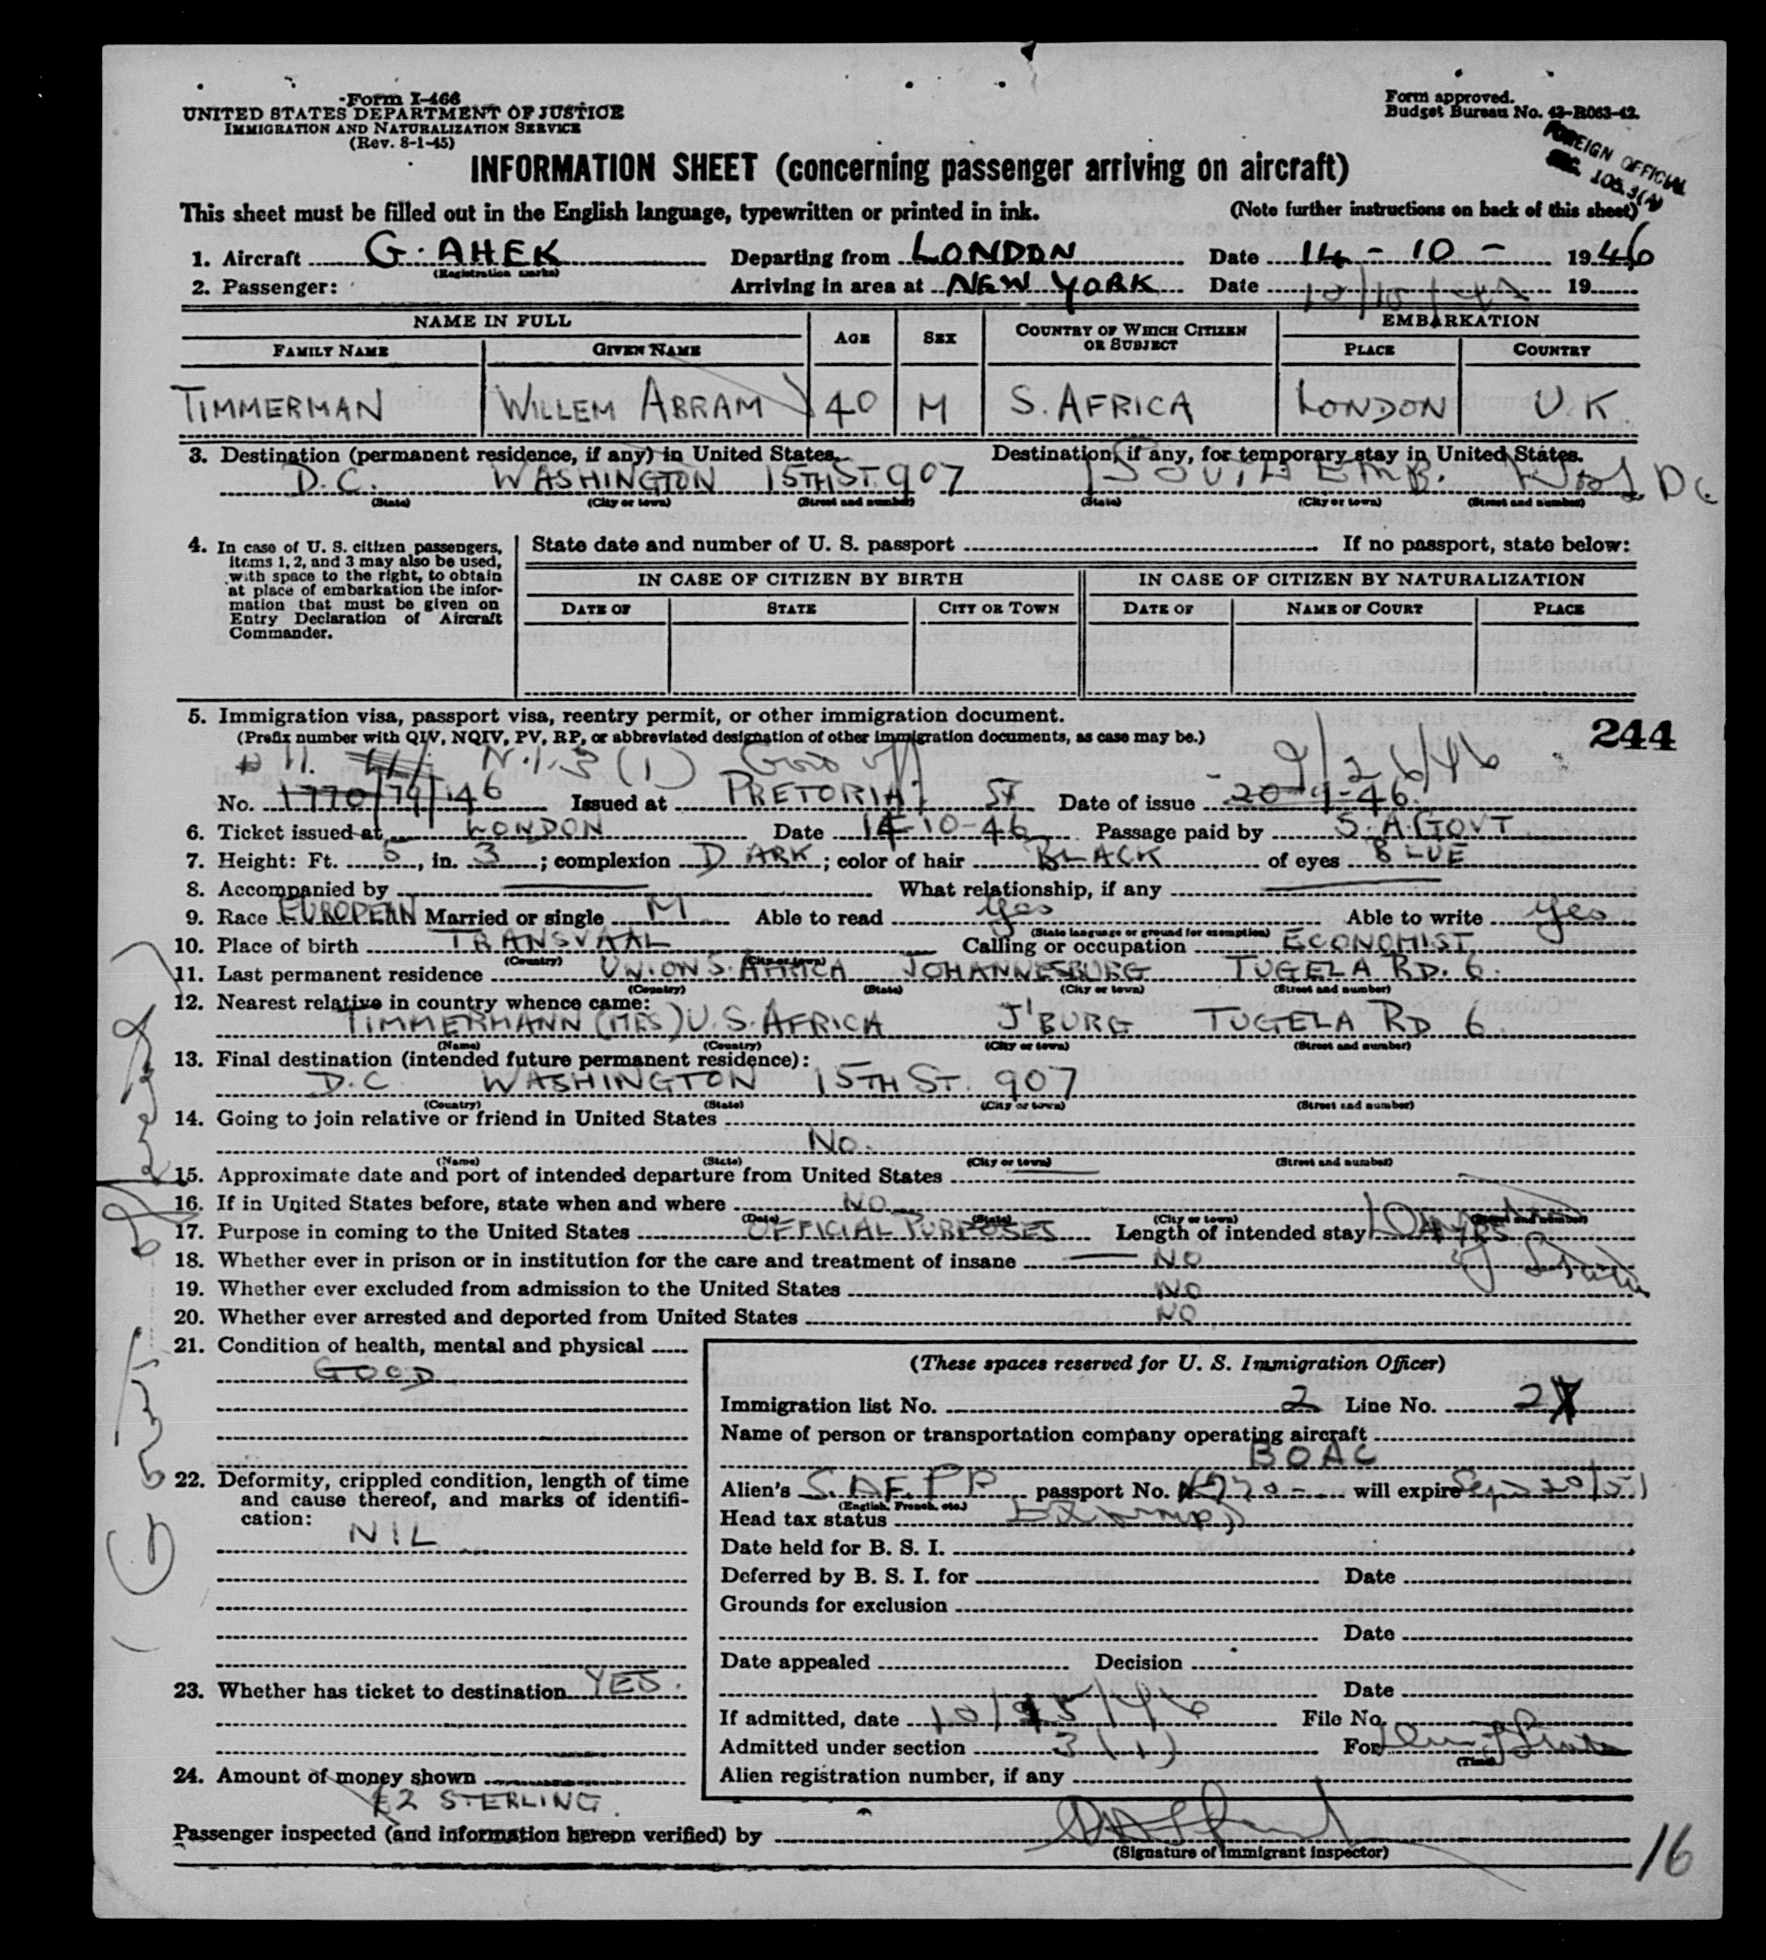 Form I-466
UNITED STATES DEPARTMENT OF JUSTICE
IMMIGRATION AND NATURALIZATION SERVICE
(Rev. 8-1-45)
Form approved.
Budget Bureau No. 43-R063-42.
FOREIGN OFFICIAL
SEC. 105.3(4)
INFORMATION SHEET (concerning passenger arriving on aircraft)
This sheet must be filled out in the English language, typewritten or printed in ink. (Note further instructions on back of this sheet)
1. Aircraft G. AHEK Departing from LONDON Date 14-10- 1946
(Registration marks)
2. Passenger: Arriving in area at NEW YORK Date 19
NAME IN FULL AGE SEX COUNTRY OF WHICH CITIZEN OR SUBJECT EMBARKATION
FAMILY NAME GIVEN NAME PLACE COUNTRY
TIMMERMAN WILLEM ABRAM 40 M S. AFRICA LONDON U K
3. Destination (permanent residence, if any) in United States. Destination, if any, for temporary stay in United States.
D.C. WASHINGTON 15TH ST. 907 SOUTH EMB. Wash DC
(State) (City or town) (Street and number) (State) (City or town) (Street and number)
4. In case of U. S. citizen passengers, items 1, 2, and 3 may also be used, with space to the right, to obtain at place of embarkation the information that must be given on Entry Declaration of Aircraft Commander.
State date and number of U. S. passport If no passport, state below:
IN CASE OF CITIZEN BY BIRTH IN CASE OF CITIZEN BY NATURALIZATION
DATE OF STATE CITY OR TOWN DATE OF NAME OF COURT PLACE
5. Immigration visa, passport visa, reentry permit, or other immigration document.
244
(Prefix number with QIV, NQIV, PV, RP, or abbreviated designation of other immigration documents, as case may be.)
N.I. 3(1) Gov off 9/26/46
No. 1770/74/46 Issued at PRETORIA Date of issue 20-9-46.
6. Ticket issued at LONDON Date 14-10-46 Passage paid by S. A. GOVT
7. Height: Ft. 5, in. 3; complexion DARK; color of hair BLACK of eyes BLUE
8. Accompanied by What relationship, if any
9. Race EUROPEAN Married or single M Able to read yes Able to write yes
(State language or ground for exemption)
10. Place of birth TRANSVAAL Calling or occupation ECONOMIST
(Country) (City or town)
11. Last permanent residence UNION S. AFRICA JOHANNESBURG TUGELA RD. 6.
(Country) (State) (City or town) (Street and number)
12. Nearest relative in country whence came:
TIMMERMANN (MRS) U. S. AFRICA J'BURG TUGELA RD 6.
(Name) (Country) (City or town) (Street and number)
13. Final destination (intended future permanent residence):
D.C. WASHINGTON 15TH ST. 907
(Country) (State) (City or town) (Street and number)
14. Going to join relative or friend in United States
No.
(Name) (State) (City or town) (Street and number)
15. Approximate date and port of intended departure from United States
16. If in United States before, state when and where NO
(Date) (State) (City or town) (Street and number)
17. Purpose in coming to the United States OFFICIAL PURPOSES Length of intended stay 4 YRS
18. Whether ever in prison or in institution for the care and treatment of insane NO
19. Whether ever excluded from admission to the United States NO
20. Whether ever arrested and deported from United States NO
21. Condition of health, mental and physical
GOOD
22. Deformity, crippled condition, length of time and cause thereof, and marks of identification:
NIL
23. Whether has ticket to destination YES.
24. Amount of money shown
£2 STERLING.
(These spaces reserved for U. S. Immigration Officer)
Immigration list No. 2 Line No. 2
Name of person or transportation company operating aircraft
BOAC
Alien's S. AF. PP passport No. will expire Sep 20/51
(English, French, etc.)
Head tax status Exempt
Date held for B. S. I.
Deferred by B. S. I. for Date
Grounds for exclusion
Date
Date appealed Decision
Date
If admitted, date 10/15/46 File No.
Admitted under section 3(1) For Dur of Status
(Time)
Alien registration number, if any
Passenger inspected (and information hereon verified) by
(Signature of immigrant inspector)
16